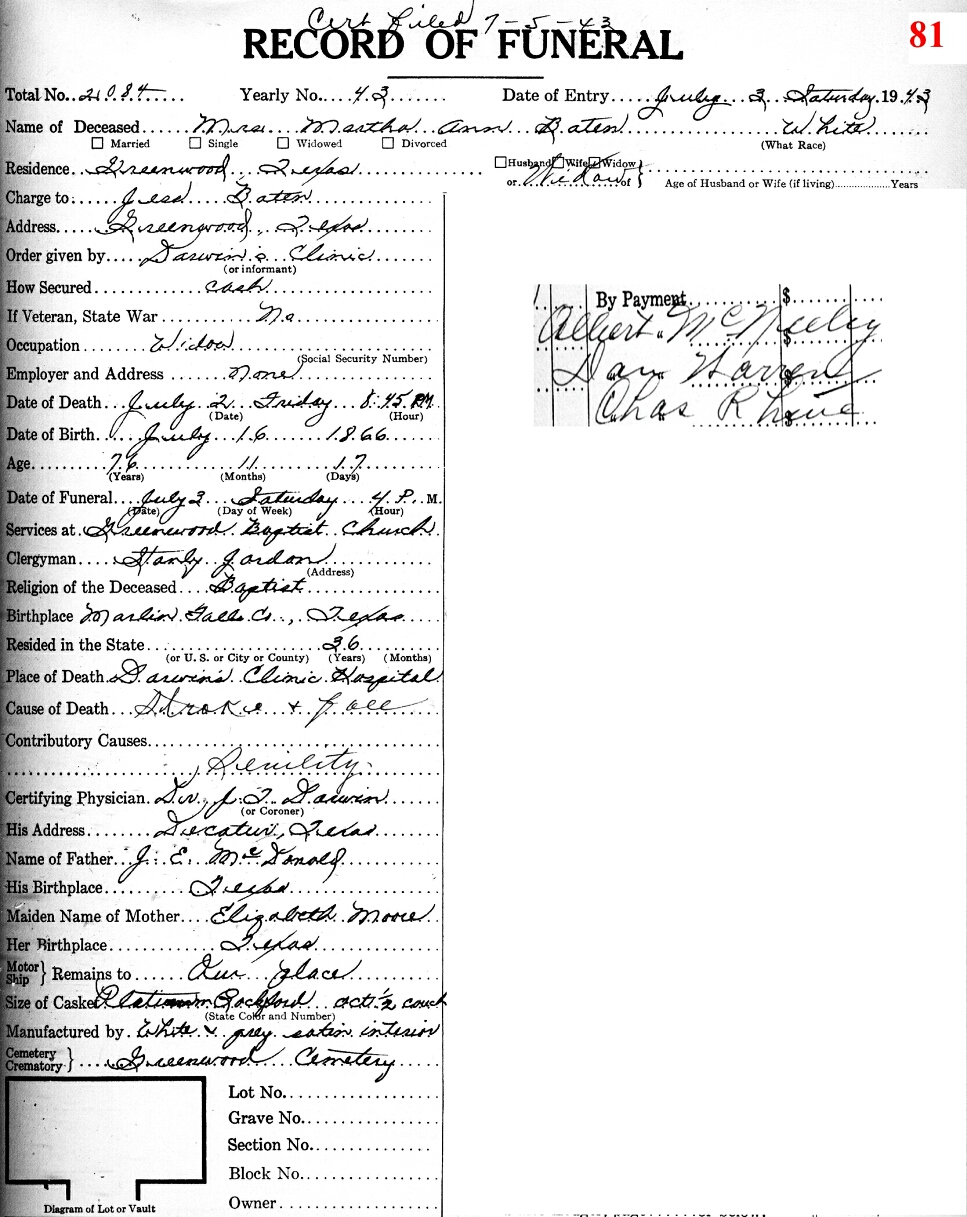 Cert Filed 7-5-43
81
RECORD OF FUNERAL
Total No. 2084 Yearly No. 43 Date of Entry July 3 Saturday 1943
Name of Deceased Mrs. Martha Ann Baten White
Married Single Widowed Divorced (What Race)
Residence Greenwood, Texas Husband Wife Widow
or Widow of Age of Husband or Wife (if living) Years
Charge to: Jess Baten
Address Greenwood, Texas
Order given by Darwin's Clinic
(or informant)
How Secured cash
If Veteran, State War No
Occupation Widow
(Social Security Number)
Employer and Address None
Date of Death July 2 Friday 8:45 PM
(Date) (Hour)
Date of Birth July 16 1866
Age 76 11 17
(Years) (Months) (Days)
Date of Funeral July 3 Saturday 4 P. M.
(Date) (Day of Week) (Hour)
Services at Greenwood Baptist Church
Clergyman Stanly Jordon
(Address)
Religion of the Deceased Baptist
Birthplace Marlin Falls Co., Texas
Resided in the State 36
(or U. S. or City or County) (Years) (Months)
Place of Death Darwin's Clinic Hospital
Cause of Death Stroke + fall
Contributory Causes
Senility
Certifying Physician Dr. J. T. Darwin
(or Coroner)
His Address Decatur, Texas
Name of Father J. E. McDonald
His Birthplace Texas
Maiden Name of Mother Elizabeth Moore
Her Birthplace Texas
Motor
Ship } Remains to Our place
Size of Casket Platinum Rockford oct. ½ couch
(State Color and Number)
Manufactured by White & grey satin interior
Cemetery
Crematory } Greenwood Cemetery
Lot No.
Grave No.
Section No.
Block No.
Owner
Diagram of Lot or Vault
By Payment $
Albert McNeeley $
Dan Warren $
Chas Rhine $